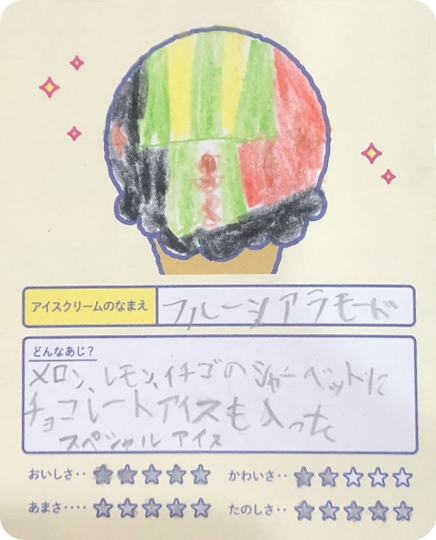 アイスクリームのなまえ
フルーツアラモード
どんなあじ?
メロン、レモン、イチゴのシャーベットに
チョコレートアイスも入った
スペシャルアイス
おいしさ‥ ★★★★★ かわいさ‥ ★★☆☆☆
あまさ‥‥ ★★★★★ たのしさ‥ ★★★★★